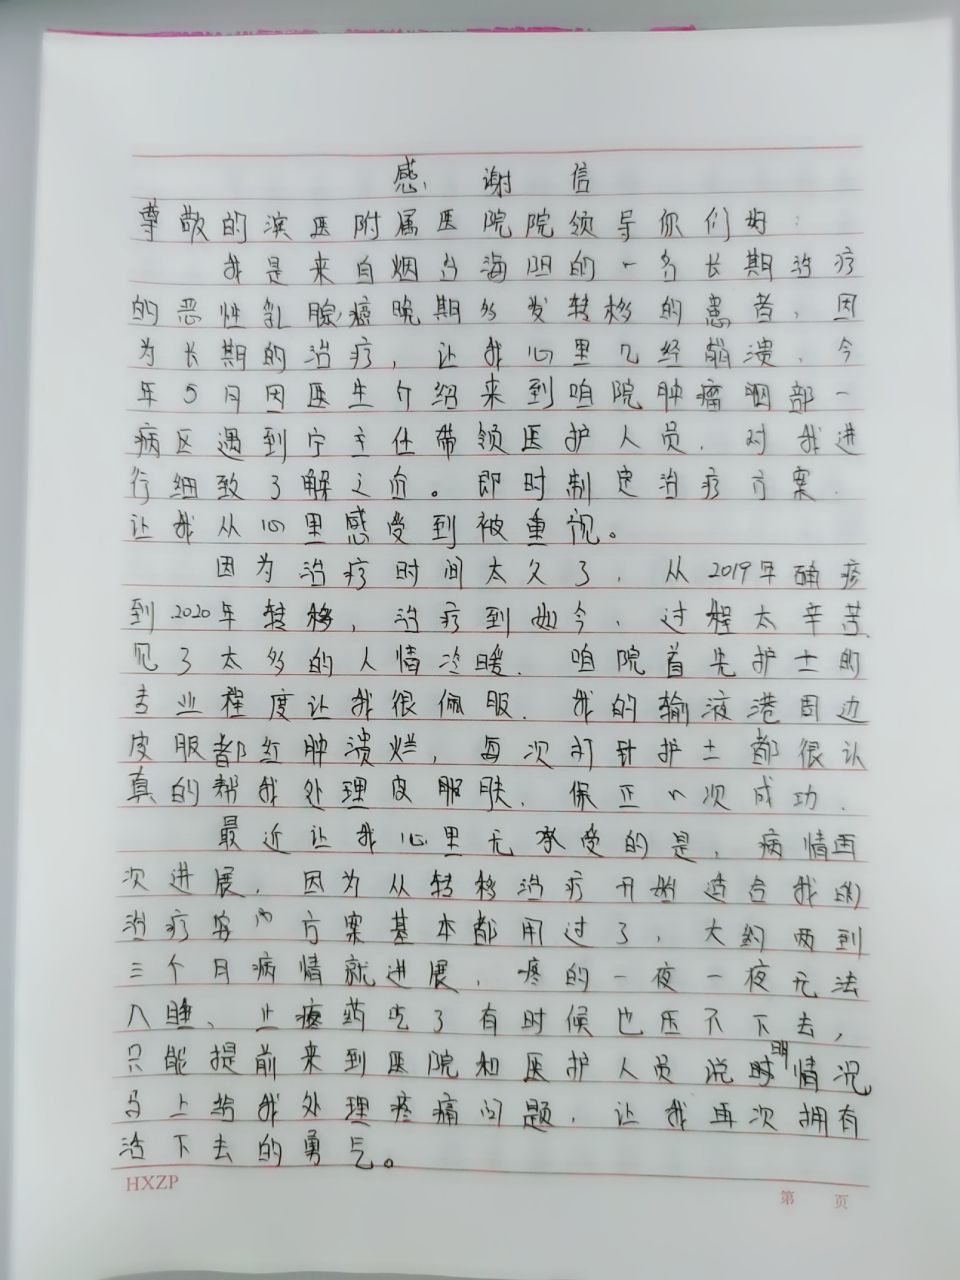 感谢信
尊敬的滨医附属医院院领导你们好：
我是来自烟台海阳的一名长期治疗
的恶性乳腺癌晚期多发转移的患者，因
为长期的治疗，让我心里几经崩溃，今
年5月因医生介绍来到咱院肿瘤胭部一
病区遇到宁主任带领医护人员，对我进
行细致了解之后。即时制定治疗方案，
让我从心里感受到被重视。
因为治疗时间太久了，从2019年确疹
到2020年转移，治疗到如今，过程太辛苦
见了太多的人情冷暖，咱院首先护士的
专业程度让我很佩服，我的输液港周边
皮服都红肿溃烂，每次打针护士都很认
真的帮我处理皮肤，保正一次成功，
最近让我心里无承受的是，病情再
次进展，因为从转移治疗开始适合我的
治疗方案基本都用过了，大约两到
三个月病情就进展，疼的一夜一夜无法
入睡、止疼药吃了有时候也压不下去，
只能提前来到医院和医护人员说明情况
马上给我处理疼痛问题，让我再次拥有
活下去的勇气。
HXZP
第 页